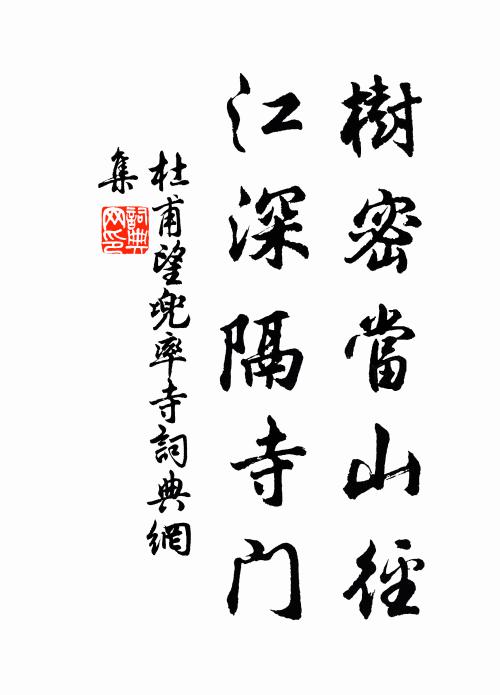 樹密當山徑
江深隔寺门
杜甫望兜率寺詞典網
集
詞典
网印